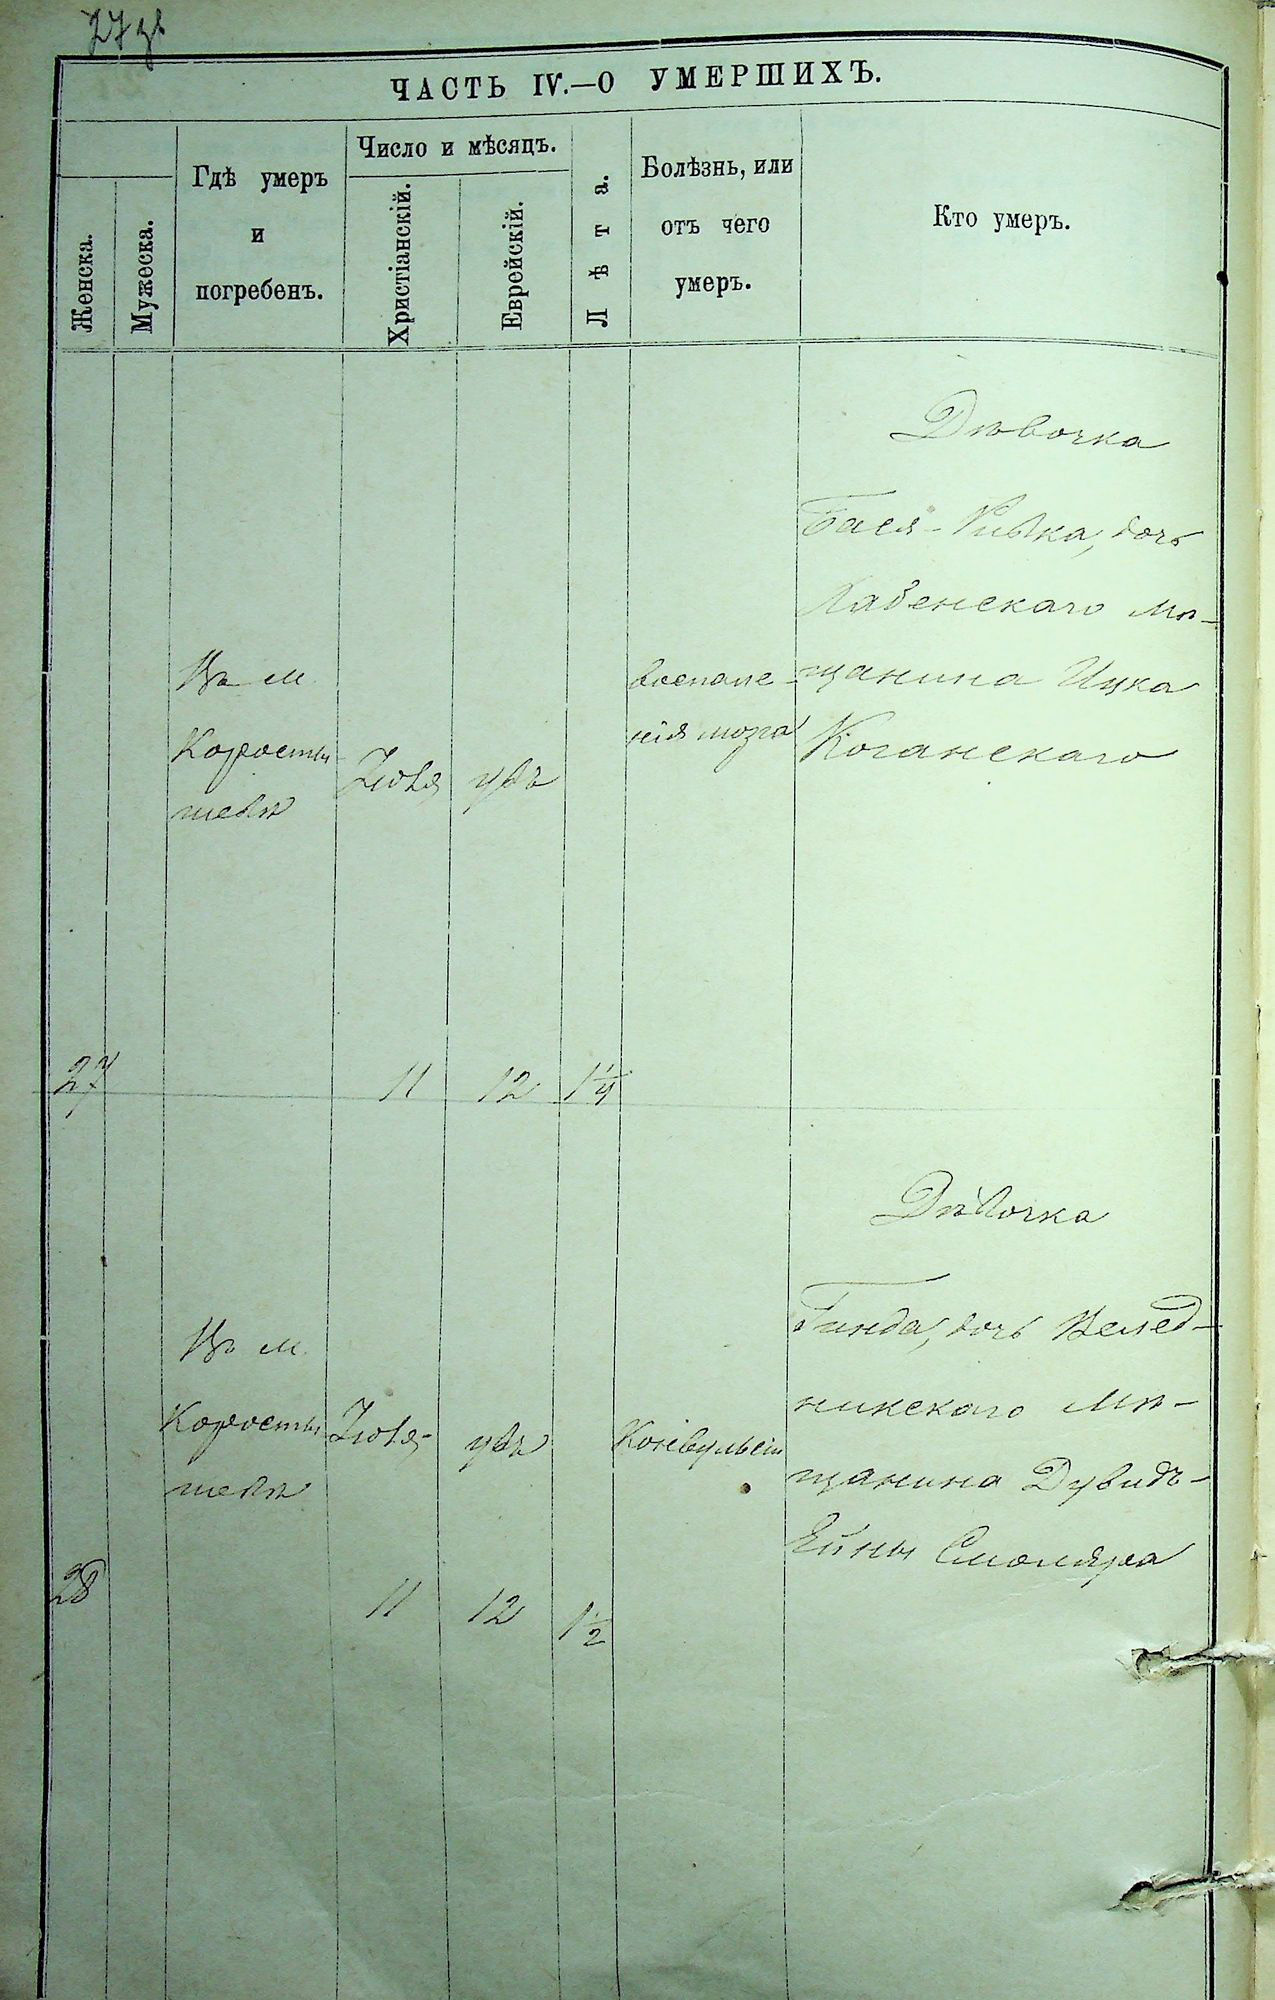 27
ЧАСТЬ IV.—О УМЕРШИХЪ.
Женска.
Мужеска.
Гдѣ умеръ
и
погребенъ.
Число и мѣсяцъ.
Христіанскій.
Еврейскій.
Лѣта.
Болѣзнь, или
отъ чего
умеръ.
Кто умеръ.
27
Въ м.
Коросты-
шевѣ
Іюля
11
12
1 1/4
воспале-
нія мозга
Дѣвочка
Бася-Ривка, дочь
Хабенскаго мѣ-
щанина Ицка
Коганскаго
28
Въ м.
Коросты-
шевѣ
Іюля
11
12
1 1/2
Конвульсіи
Дѣвочка
Гинда, дочь Велед-
никскаго мѣ-
щанина Дувидъ-
Смоляра